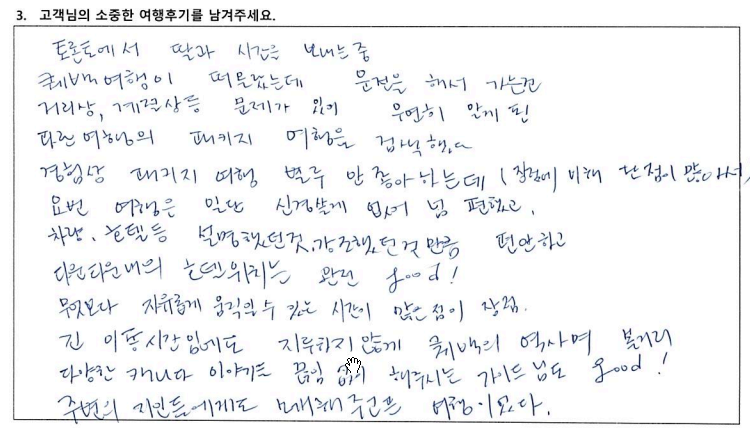 3. 고객님의 소중한 여행후기를 남겨주세요.
토론토에서 딸과 시간을 보내는 중
퀘백여행이 떠올랐는데 운전을 해서 가는건
거리상, 계절상등 문제가 있어 우연히 알게 된
파란여행의 패키지 여행을 검색했다
경험상 패키지 여행 별루 안 좋아하는데 (장점에 비해 단점이 많아서,
요번 여행은 일단 신경쓸게 없어 넘 편했고,
차량, 호텔등 설명했던것, 강조했던 것만큼 편안하고
다운타운내의 호텔위치는 완전 good!
무엇보다 자유롭게 움직일 수 있는 시간이 많은 점이 장점.
긴 이동시간임에도 지루하지 않게 퀘백의 역사며 볼거리
다양한 캐나다 이야기도 끊임 없이 해주시는 가이드님도 good!
주변의 지인들에게도 소개해주고픈 여행이었다.